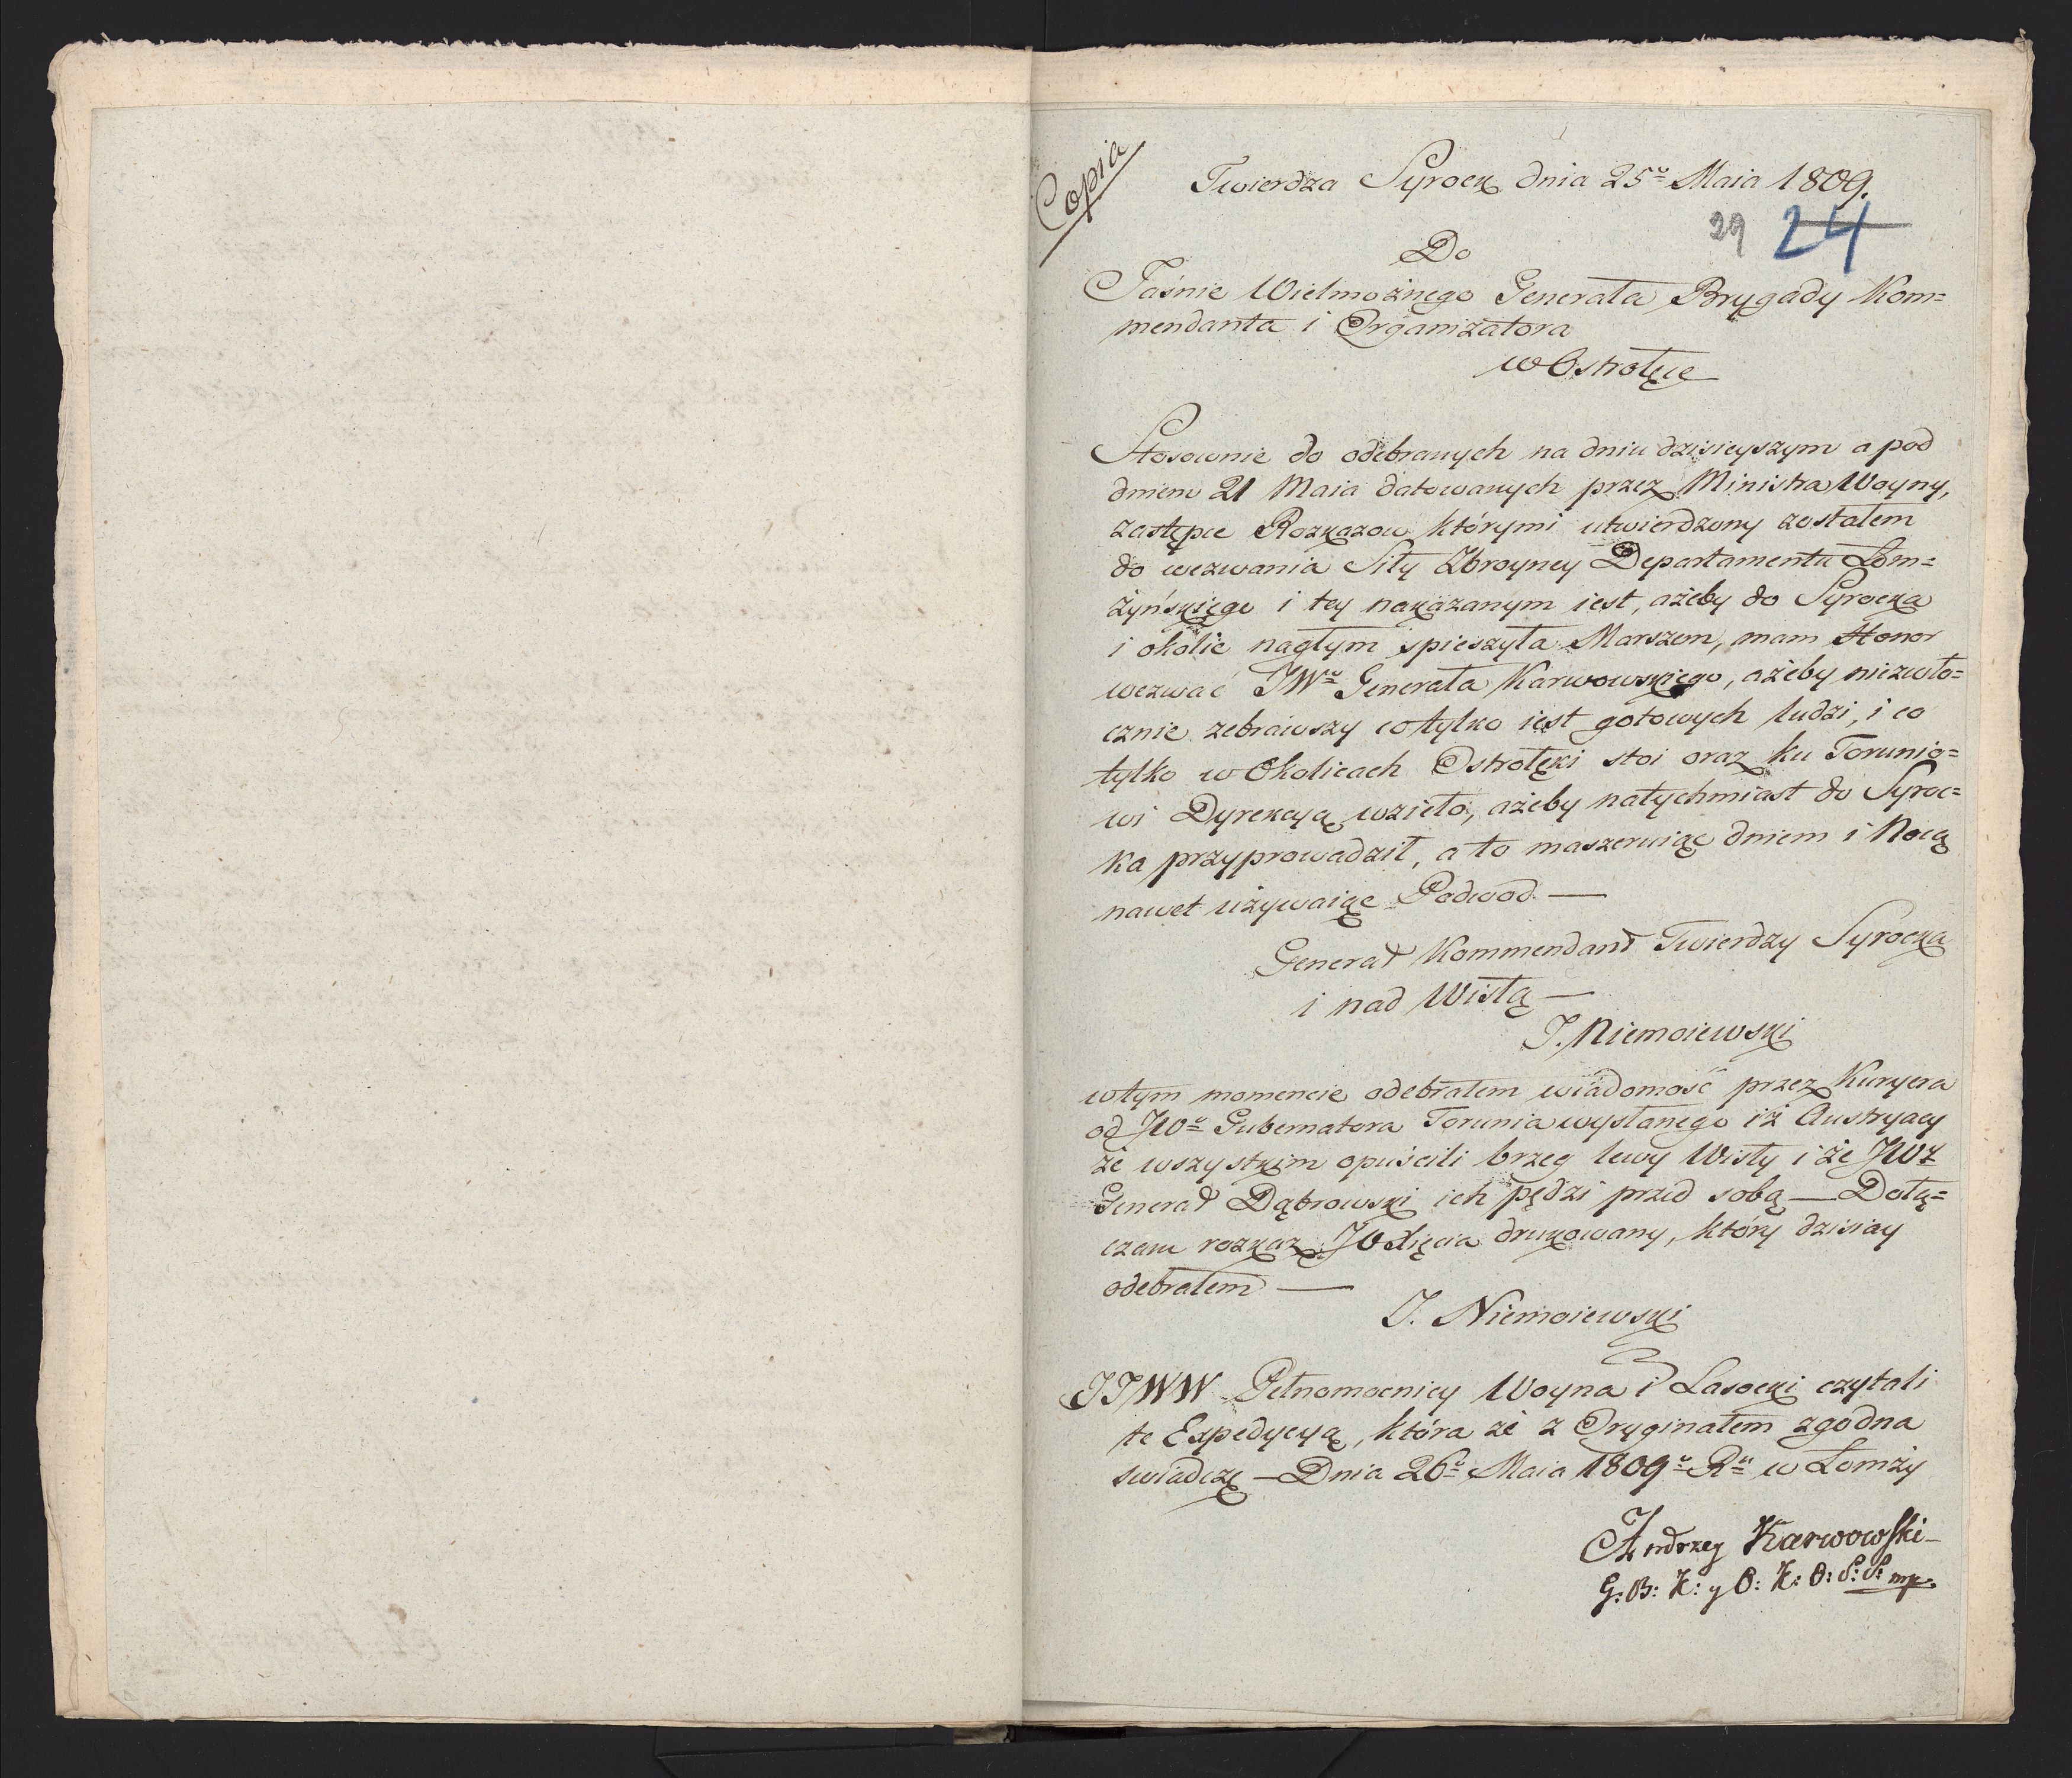 Copia
Twierdza Syrock dnia 25º Maia 1809.
29 24
Do
Jaśnie Wielmożnego Generała Brygady Kom=
mendanta i Organizatora
w Ostrołęce
Stosownie do odebranych na dniu dzisieyszym a pod
dniem 21 Maia datowanych przez Ministra Woyny,
zastępce Rozkazow którymi utwierdzony zostałem
do wezwania Siły Zbroyney Departamentu Łom=
żyńskiego i tey nakazanym iest, ażeby do Syrocka
i okolic nagłym spieszyła Marszem, mam Honor
wezwać JWº Generała Karwowskiego, ażeby niezwło=
cznie zebrawszy co tylko iest gotowych ludzi, i co
tylko w Okolicach Ostrołęki stoi oraz ku Torunio=
wi Dyrekcyą wzieło, ażeby natychmiast do Syroc=
ka przyprowadził, a to maszeruiąc dniem i Nocą
nawet używaiąc Podwod —
Generał Kommendant Twierdzy Syrocka
i nad Wisłą —
J. Niemoiewski
w tym momencie odebrałem wiadomość przez Kuryera
od JWº Gubernatora Torunia wysłanego iż Austryacy
ze wszystkim opuścili brzeg lewy Wisły i że JWż
Generał Dąbrowski ich pędzi przed sobą — Dołą=
czam rozkaz JO Xięcia drukowany, który dzisiay
odebrałem —
J. Niemoiewski
JJWW Pełnomocnicy Woyna i Lasocki czytali
te Expedycyą, która że z Oryginałem zgodna
swiadczę — Dnia 26º Maia 1809º Rº w Łomży
Andrzey Karwowski —
G: B: K: y O: K: O: S: S: mp.